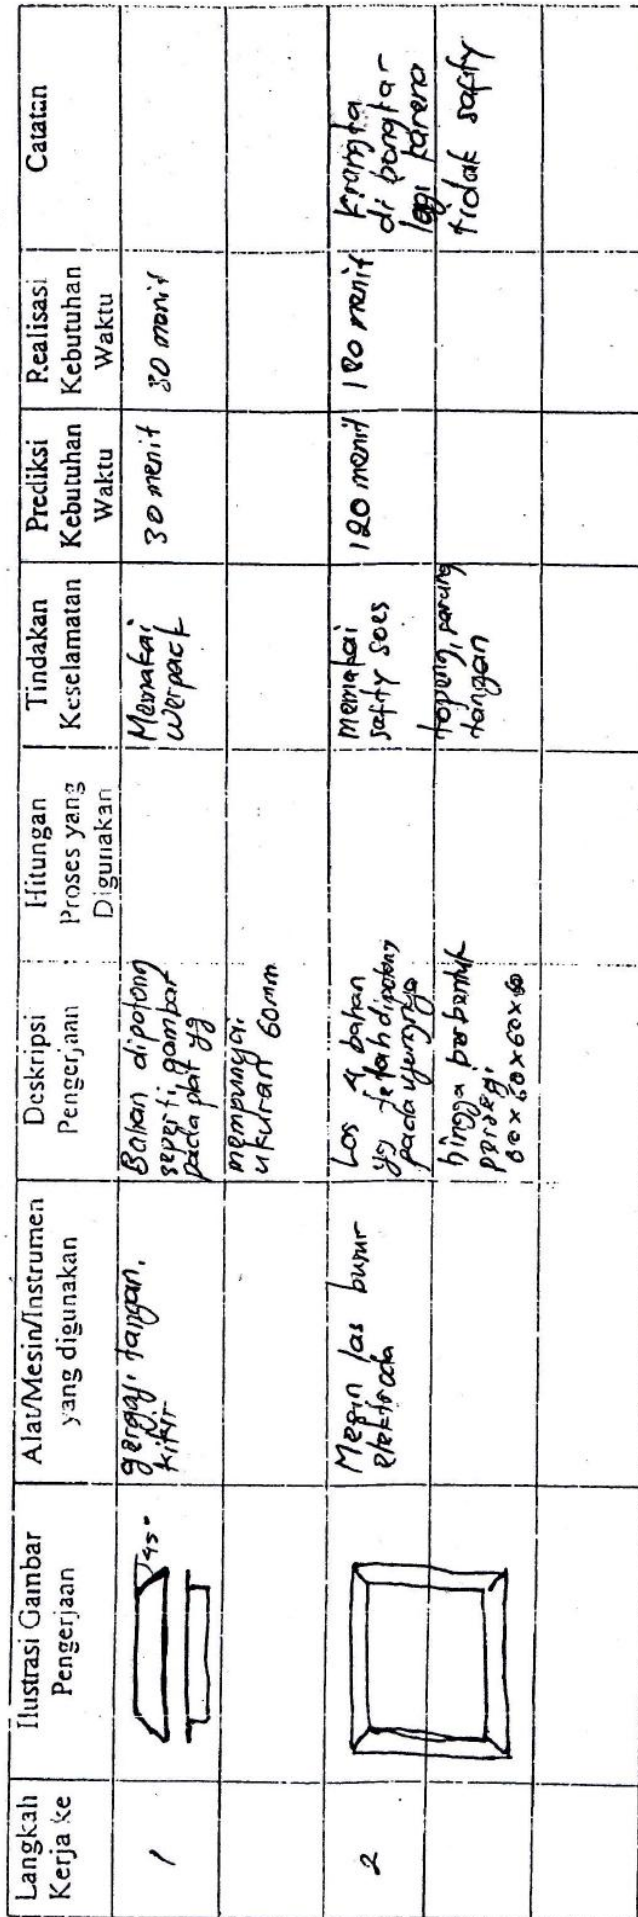 Langkah
Kerja ke
Ilustrasi Gambar
Pengerjaan
Alat/Mesin/Instrumen
yang digunakan
Deskripsi
Pengerjaan
Hitungan
Proses yang
Digunakan
Tindakan
Keselamatan
Prediksi
Kebutuhan
Waktu
Realisasi
Kebutuhan
Waktu
Catatan
1
45°
gergaji tangan,
kikir
Bahan dipotong
seperti gambar
pada plat yg
mempunyai
ukuran 60mm
Memakai
werpack
30 menit
30 menit
2
Mesin las busur
elektroda
Las 4 bahan
yg telah dipotong
pada ujungnya
hingga berbentuk
persegi
60x60x60x60
memakai
safty soes
topeng, sarung
tangan
120 menit
180 menit
krangka
di bongkar
lagi karena
tidak safty